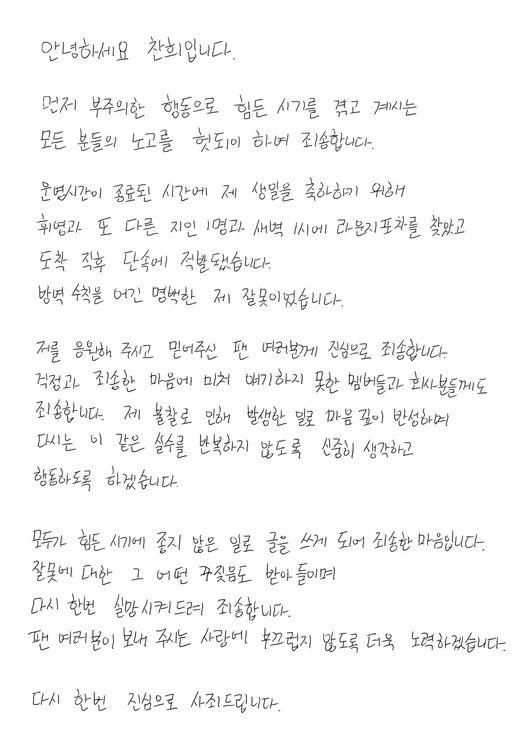 안녕하세요 찬희입니다.
먼저 부주의한 행동으로 힘든 시기를 겪고 계시는
모든 분들의 노고를 헛되이 하여 죄송합니다.
운영시간이 종료된 시간에 제 생일을 축하하기 위해
휘영과 또 다른 지인 1명과 새벽 1시에 라운지포차를 찾았고
도착 직후 단속에 적발됐습니다.
방역 수칙을 어긴 명백한 제 잘못이었습니다.
저를 응원해 주시고 믿어주신 팬 여러분께 진심으로 죄송합니다.
걱정과 죄송한 마음에 미처 얘기하지 못한 멤버들과 회사분들께도
죄송합니다. 제 불찰로 인해 발생한 일로 마음 깊이 반성하며
다시는 이 같은 실수를 반복하지 않도록 신중히 생각하고
행동하도록 하겠습니다.
모두가 힘든 시기에 좋지 않은 일로 글을 쓰게 되어 죄송한 마음입니다.
잘못에 대한 그 어떤 꾸짖음도 받아들이며
다시 한번 실망시켜드려 죄송합니다.
팬 여러분이 보내 주시는 사랑에 부끄럽지 않도록 더욱 노력하겠습니다.
다시 한번 진심으로 사죄드립니다.